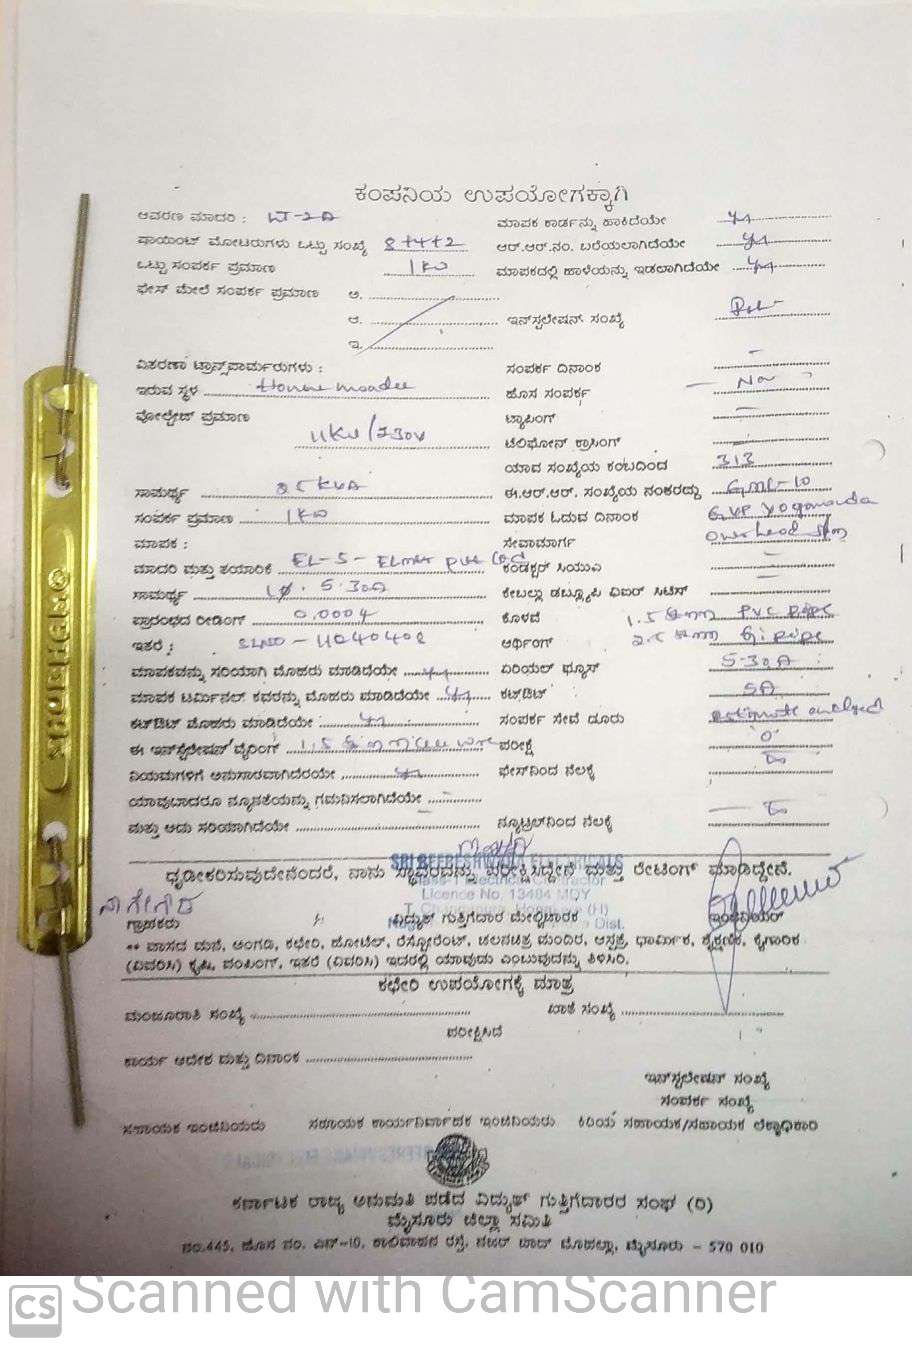 ಕಂಪನಿಯ ಉಪಯೋಗಕ್ಕಾಗಿ
ಆವರಣ ಮಾದರಿ : LT-2A ಮಾಪಕ ಕಾರ್ಡನ್ನು ಹಾಕಿದೆಯೇ ys
ಪಾಯಿಂಟ್ ಮೋಟರುಗಳು ಒಟ್ಟು ಸಂಖ್ಯೆ 8+4+2 ಆರ್.ಆರ್.ನಂ. ಬರೆಯಲಾಗಿದೆಯೇ ys
ಒಟ್ಟು ಸಂಪರ್ಕ ಪ್ರಮಾಣ 1KW ಮಾಪಕದಲ್ಲಿ ಹಾಳೆಯನ್ನು ಇಡಲಾಗಿದೆಯೇ ys
ಫೇಸ್ ಮೇಲೆ ಸಂಪರ್ಕ ಪ್ರಮಾಣ ಅ.
ಆ. ಇನ್‌ಸ್ಟಲೇಷನ್ ಸಂಖ್ಯೆ
ಇ.
ವಿತರಣಾ ಟ್ರಾನ್ಸ್‌ಪಾರ್ಮರುಗಳು : ಸಂಪರ್ಕ ದಿನಾಂಕ –
ಇರುವ ಸ್ಥಳ ಹೊಸ ಸಂಪರ್ಕ
ವೋಲ್ಟೇಜ್ ಪ್ರಮಾಣ ಟ್ಯಾಪಿಂಗ್ –
11KV/230V ಟೆಲಿಫೋನ್ ಕ್ರಾಸಿಂಗ್ –
ಯಾವ ಸಂಖ್ಯೆಯ ಕಂಬದಿಂದ 313
ಸಾಮರ್ಥ್ಯ 25 KVA ಈ.ಆರ್.ಆರ್. ಸಂಖ್ಯೆಯ ನಂತರದ್ದು GML-10
ಸಂಪರ್ಕ ಪ್ರಮಾಣ 1KW ಮಾಪಕ ಓದುವ ದಿನಾಂಕ GVP Yogananda
ಮಾಪಕ : ಸೇವಾಮಾರ್ಗ overhead
ಮಾದರಿ ಮತ್ತು ತಯಾರಿಕೆ EL-5 - ELmer pvt Ltd ಕಂಡಕ್ಟರ್ ಸಿಯುಎ –
ಸಾಮರ್ಥ್ಯ 1φ. 5-30A ಕೇಬಲ್ಲು ಡಬ್ಲ್ಯೂಪಿ ವಿಐಆರ್ ಸಿಟಿಸ್ –
ಪ್ರಾರಂಭದ ರೀಡಿಂಗ್ 0.0004 ಕೊಳವೆ PVC pipe
ಇತರೆ : SLNO - 11040408 ಅರ್ಥಿಂಗ್ Gi pipe
ಮಾಪಕವನ್ನು ಸರಿಯಾಗಿ ಮೊಹರು ಮಾಡಿದೆಯೇ ys ಏರಿಯಲ್ ಫ್ಯೂಸ್ 5-30A
ಮಾಪಕ ಟರ್ಮಿನಲ್ ಕವರನ್ನು ಮೊಹರು ಮಾಡಿದೆಯೇ ys ಕಟ್‌ಔಟ್ 5A
ಕಟ್‌ಔಟ್ ಮೊಹರು ಮಾಡಿದೆಯೇ ys ಸಂಪರ್ಕ ಸೇವೆ ದೂರು estimate
ಈ ಇನ್‌ಸ್ಟಲೇಷನ್ ವೈರಿಂಗ್ ಪರೀಕ್ಷೆ 'O'
ನಿಯಮಗಳಿಗೆ ಅನುಸಾರವಾಗಿದೆಯೇ ys ಫೇಸ್‌ನಿಂದ ನೆಲಕ್ಕೆ
ಯಾವುದಾದರೂ ನ್ಯೂನತೆಯನ್ನು ಗಮನಿಸಲಾಗಿದೆಯೇ –
ಮತ್ತು ಅದು ಸರಿಯಾಗಿದೆಯೇ ನ್ಯೂಟ್ರಲ್‌ನಿಂದ ನೆಲಕ್ಕೆ
SRI BEERESHWARA ELECTRICALS
ಧೃಡೀಕರಿಸುವುದೇನೆಂದರೆ, ನಾನು ಸ್ಥಾವರವನ್ನು ಪರೀಕ್ಷಿಸಿದ್ದೇನೆ ಮತ್ತು ರೇಟಿಂಗ್ ಮಾಡಿದ್ದೇನೆ.
Class-1 Electrical Contractor
Licence No. 13484 MQY
ನಾಗೇಗೌಡ
ಗ್ರಾಹಕರು ವಿದ್ಯುತ್ ಗುತ್ತಿಗೆದಾರ ಮೇಲ್ವಿಚಾರಕ ಇಂಜಿನಿಯರ್
** ವಾಸದ ಮನೆ, ಅಂಗಡಿ, ಕಛೇರಿ, ಹೋಟೆಲ್, ರೆಸ್ಟೋರೆಂಟ್, ಚಲನಚಿತ್ರ ಮಂದಿರ, ಆಸ್ಪತ್ರೆ, ಧಾರ್ಮಿಕ, ಶೈಕ್ಷಣಿಕ, ಕೈಗಾರಿಕ
(ವಿವರಿಸಿ) ಕೃಷಿ, ಪಂಪಿಂಗ್, ಇತರೆ (ವಿವರಿಸಿ) ಇದರಲ್ಲಿ ಯಾವುದು ಎಂಬುವುದನ್ನು ತಿಳಿಸಿರಿ.
ಕಛೇರಿ ಉಪಯೋಗಕ್ಕೆ ಮಾತ್ರ
ಮಂಜೂರಾತಿ ಸಂಖ್ಯೆ ಖಾತೆ ಸಂಖ್ಯೆ
ಪರೀಕ್ಷಿಸಿದೆ
ಕಾರ್ಯ ಆದೇಶ ಮತ್ತು ದಿನಾಂಕ
ಇನ್‌ಸ್ಟಲೇಷನ್ ಸಂಖ್ಯೆ
ಸಂಪರ್ಕ ಸಂಖ್ಯೆ
ಸಹಾಯಕ ಇಂಜಿನಿಯರು ಸಹಾಯಕ ಕಾರ್ಯನಿರ್ವಾಹಕ ಇಂಜಿನಿಯರು ಕಿರಿಯ ಸಹಾಯಕ/ಸಹಾಯಕ ಲೆಕ್ಕಾಧಿಕಾರಿ
ಕರ್ನಾಟಕ ರಾಜ್ಯ ಅನುಮತಿ ಪಡೆದ ವಿದ್ಯುತ್ ಗುತ್ತಿಗೆದಾರರ ಸಂಘ (ರಿ)
ಮೈಸೂರು ಜಿಲ್ಲಾ ಸಮಿತಿ
ನಂ.445, ಹೊಸ ನಂ. ಎನ್-10, ಕಾಳಿದಾಸ ರಸ್ತೆ, ನಜರ್ ಬಾದ್ ಮೊಹಲ್ಲಾ, ಮೈಸೂರು – 570 010
CS Scanned with CamScanner